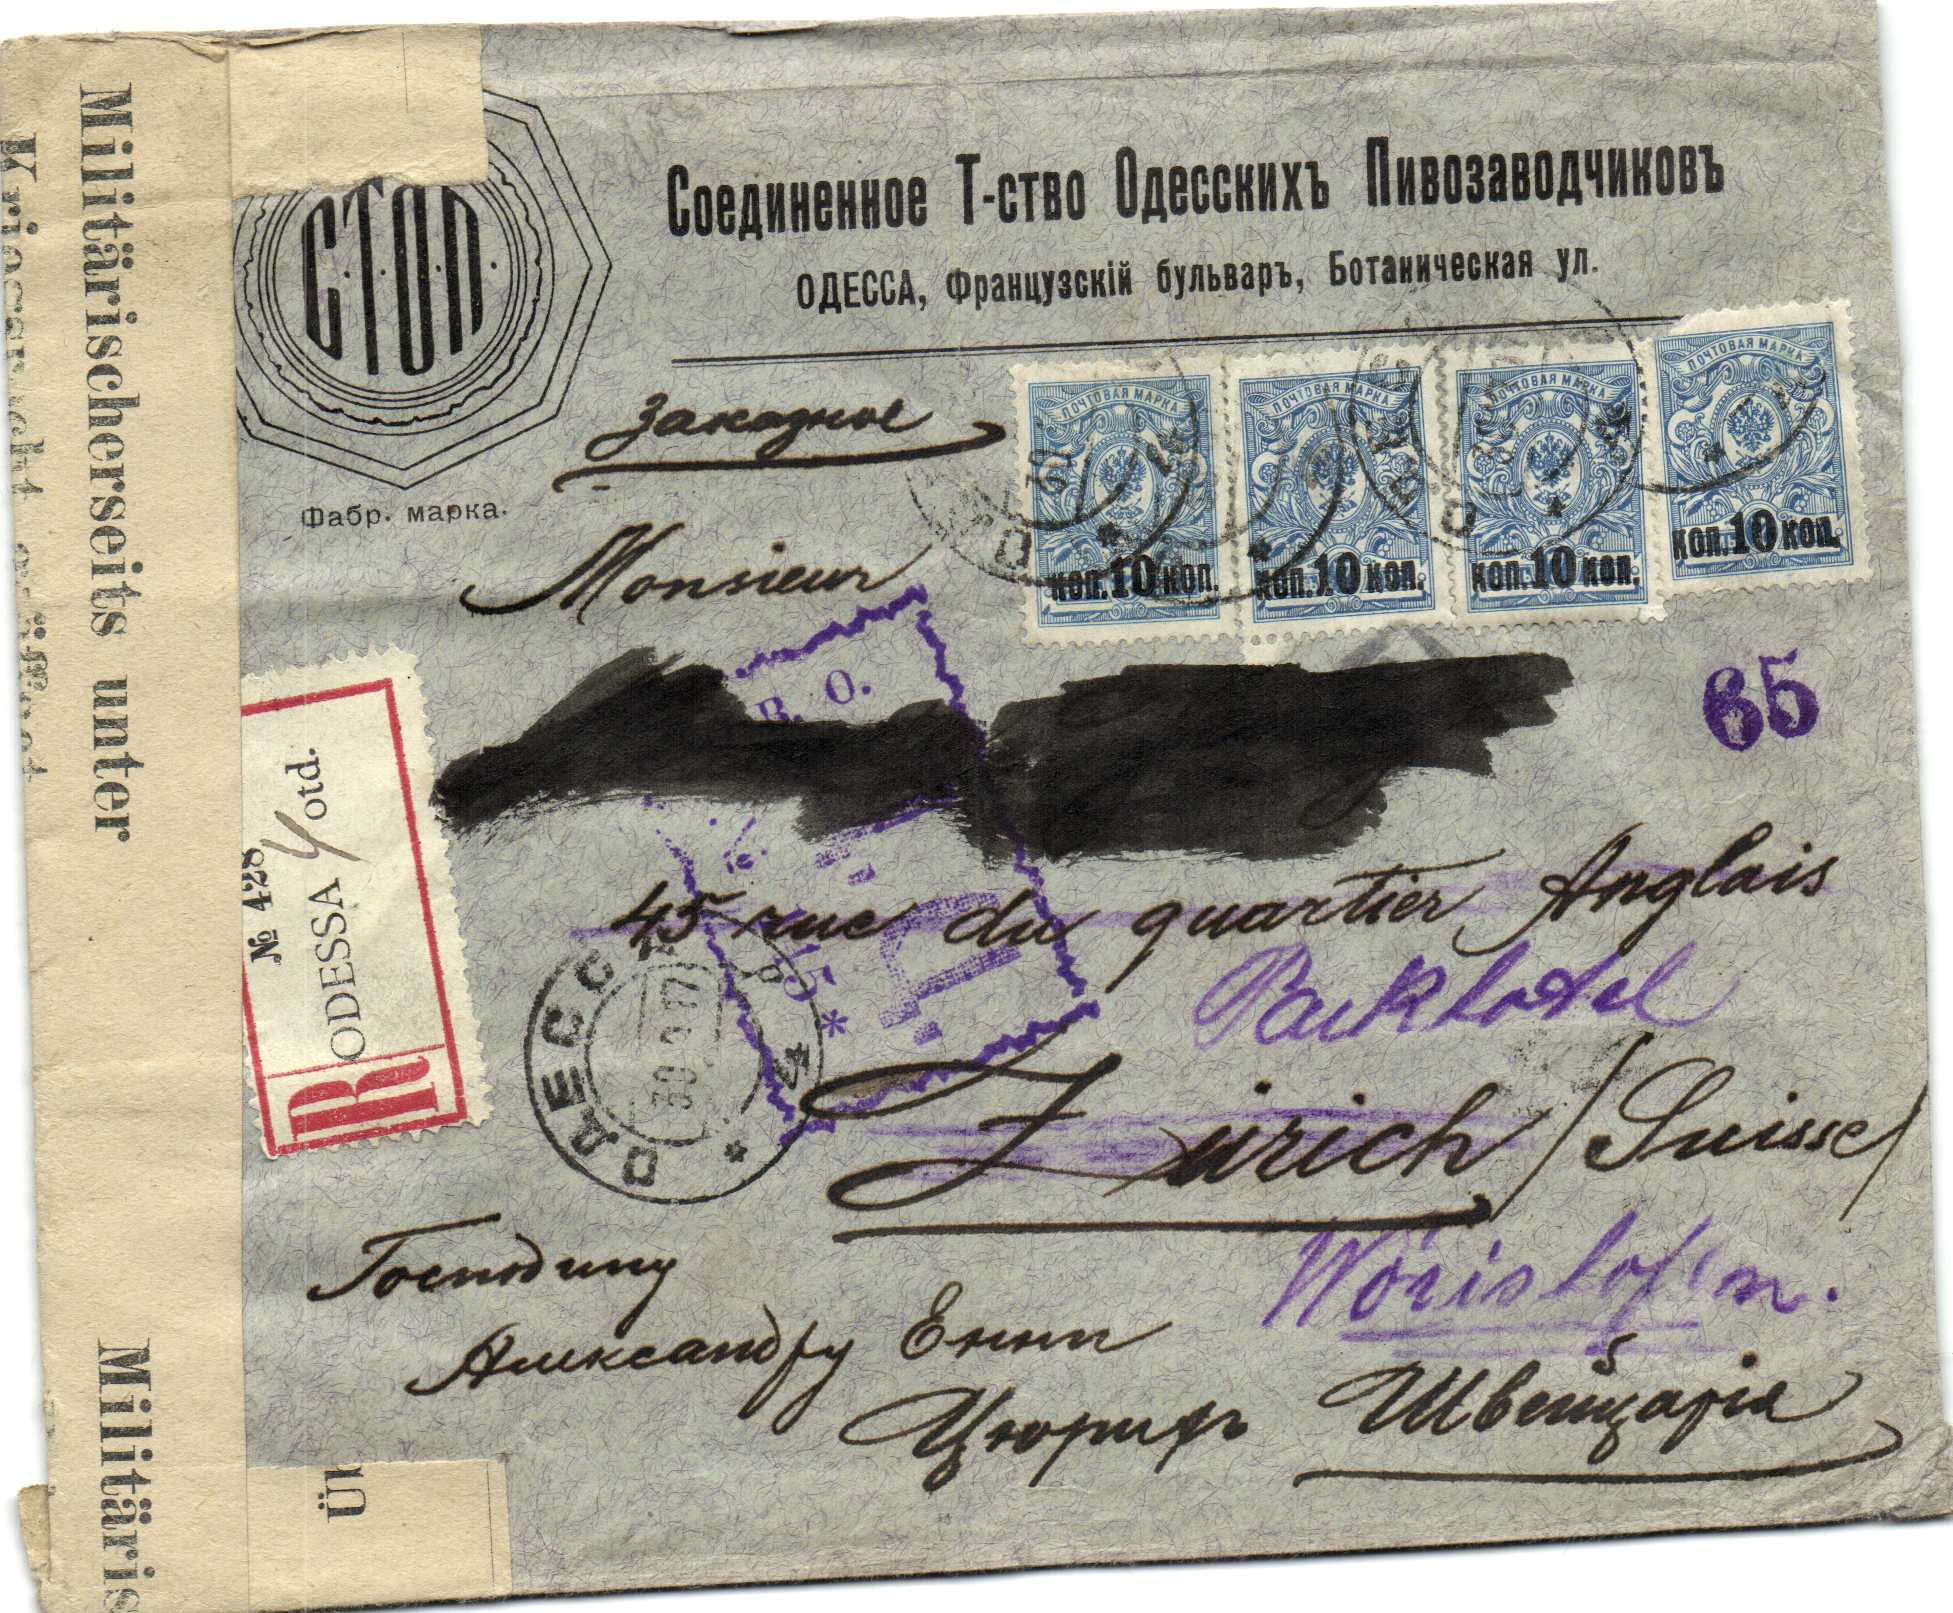 Militärischerseits unter
Kriegsrecht geöffnet
Militäris
Ü
С.Т.О.П.
Фабр. марка.
Соединенное Т-ство Одесскихъ Пивозаводчиковъ
ОДЕССА, Французскій бульваръ, Ботаническая ул.
Заказное
ПОЧТОВАЯ МАРКА
коп. 10 коп.
ПОЧТОВАЯ МАРКА
коп. 10 коп.
ПОЧТОВАЯ МАРКА
коп. 10 коп.
ПОЧТОВАЯ МАРКА
коп. 10 коп.
Monsieur
В. О.
65
R ODESSA 4 otd.
№ 428
45 rue du quartier Anglais
Parkhotel
ОДЕССА
Zürich /Suisse/
Wörishofen.
Господину
Александру Енни
Цюрихъ Швейцарія